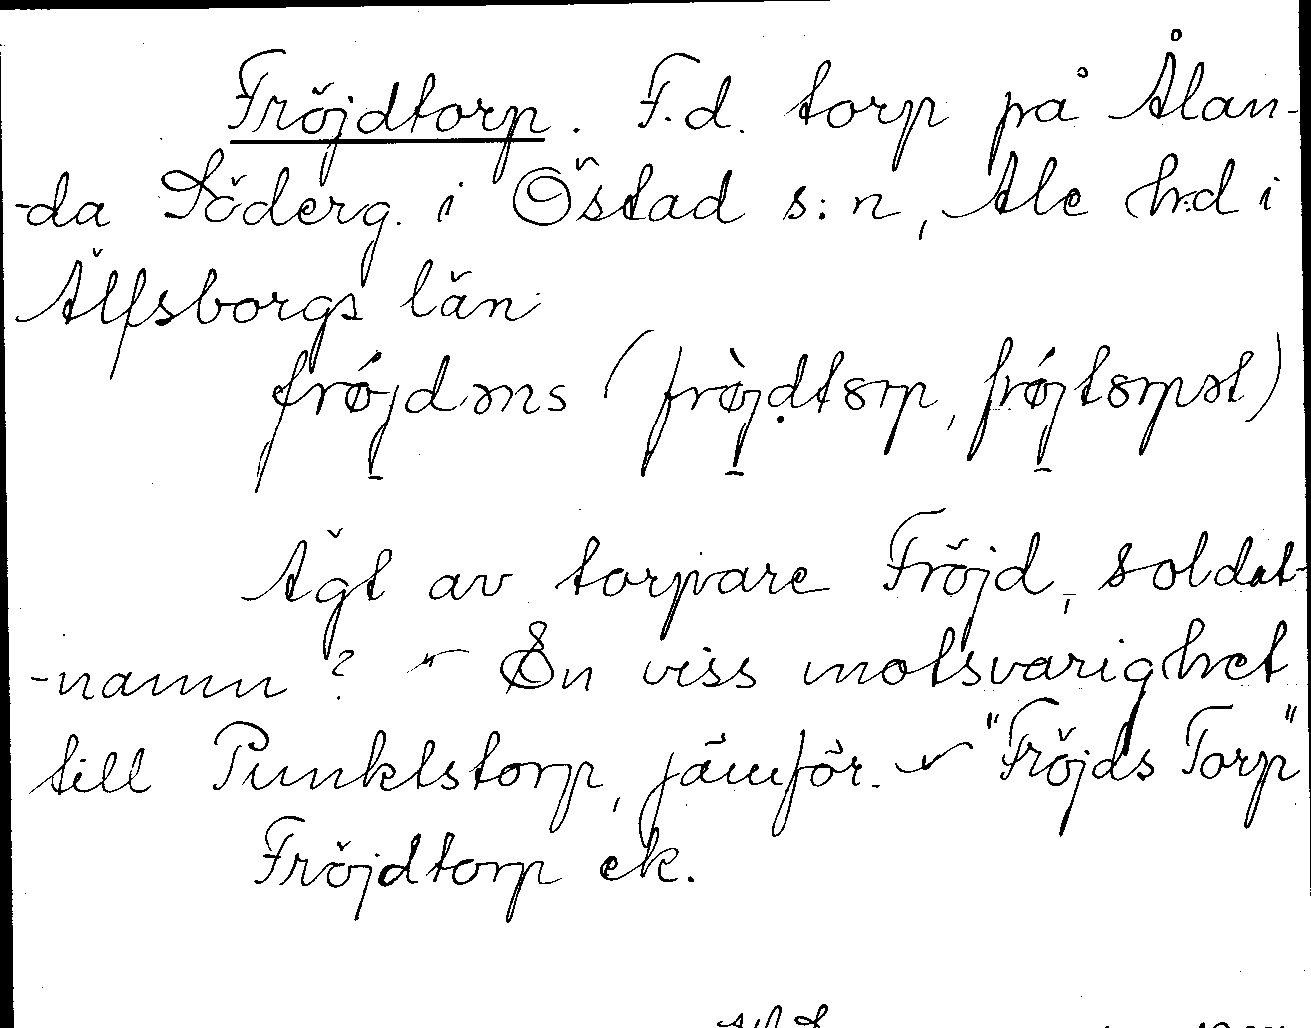 Fröjdtorp. F.d. torp på Ålan-
-da Söderg. i Östad s:n, Ale h:d i
Älfsborgs län.
frǿjdəns (frø̀jdtɔrp, frǿjtɔrpət)
Ägt av torpare Fröjd, soldat-
-namn? - En viss motsvarighet
till Punktstorp, jämför. - "Fröjds Torp"
Fröjdtorp ek.